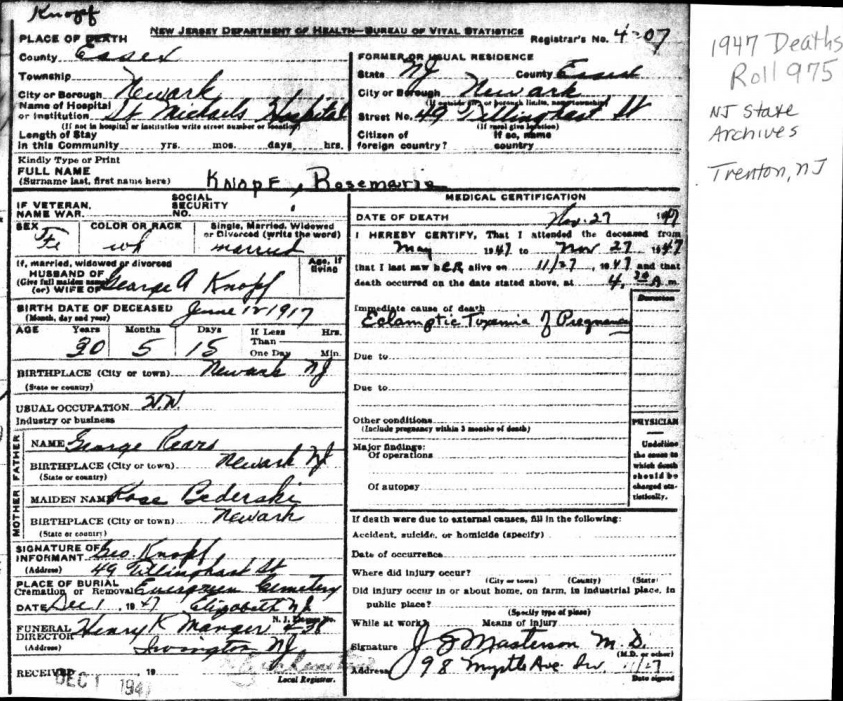 Knopf
NEW JERSEY DEPARTMENT OF HEALTH—BUREAU OF VITAL STATISTICS
Registrar's No. 4-07
PLACE OF DEATH
County Essex
Township
City or Borough Newark
Name of Hospital or Institution St Michaels Hospital
(If not in hospital or institution write street number or location)
Length of Stay
in this Community yrs. mos. days hrs.
FORMER OR USUAL RESIDENCE
State NJ County Essex
City or Borough Newark
(If outside city or borough limits, name township)
Street No. 49 Dillinghast St
(If rural give location)
Citizen of foreign country? If so, name country
Kindly Type or Print
FULL NAME
(Surname last, first name here) KNOPF, Rosemarie
IF VETERAN, NAME WAR
SOCIAL SECURITY NO.
SEX Fe
COLOR OR RACE wh
Single, Married, Widowed or Divorced (write the word) married
If, married, widowed or divorced
HUSBAND OF
(Give full maiden name)
(or) WIFE OF George A Knopf
Age, if living
BIRTH DATE OF DECEASED June 12 1917
(Month, day and year)
AGE Years Months Days If Less Than One Day Hrs. Min.
30 5 15
BIRTHPLACE (City or town) Newark NJ
(State or country)
USUAL OCCUPATION H.W.
Industry or business
FATHER
NAME George Rears
BIRTHPLACE (City or town) Newark NJ
(State or country)
MOTHER
MAIDEN NAME Rose Bederski
BIRTHPLACE (City or town) Newark
(State or country)
SIGNATURE OF INFORMANT Geo. Knopf
(Address) 49 Dillinghast St
PLACE OF BURIAL
Cremation or Removal Evergreen Cemetery
DATE Dec 1 1947 Elizabeth NJ
FUNERAL DIRECTOR Henry K Manger
(Address) Irvington NJ
RECEIVED 19
DEC 1 194
Local Registrar.
MEDICAL CERTIFICATION
DATE OF DEATH Nov. 27 1947
I HEREBY CERTIFY, That I attended the deceased from
May 1947 to Nov 27 1947
that I last saw hER alive on 11/27, 1947 and that
death occurred on the date stated above, at 4.30 A m.
Duration
Immediate cause of death
Eclamptic Toxemia of Pregnancy
Due to
Due to
Other conditions
(Include pregnancy within 3 months of death)
Major findings:
Of operations
Of autopsy
PHYSICIAN
Underline the cause to which death should be charged statistically.
If death were due to external causes, fill in the following:
Accident, suicide, or homicide (specify)
Date of occurrence
Where did injury occur?
(City or town) (County) (State)
Did injury occur in or about home, on farm, in industrial place, in
public place?
(Specify type of place)
While at work? Means of injury
Signature J J Masterson M.D.
(M.D. or other)
Address 98 Myrtle Ave. Irv 11/27
Date signed
1947 Deaths
Roll 975
NJ State
Archives
Trenton, NJ